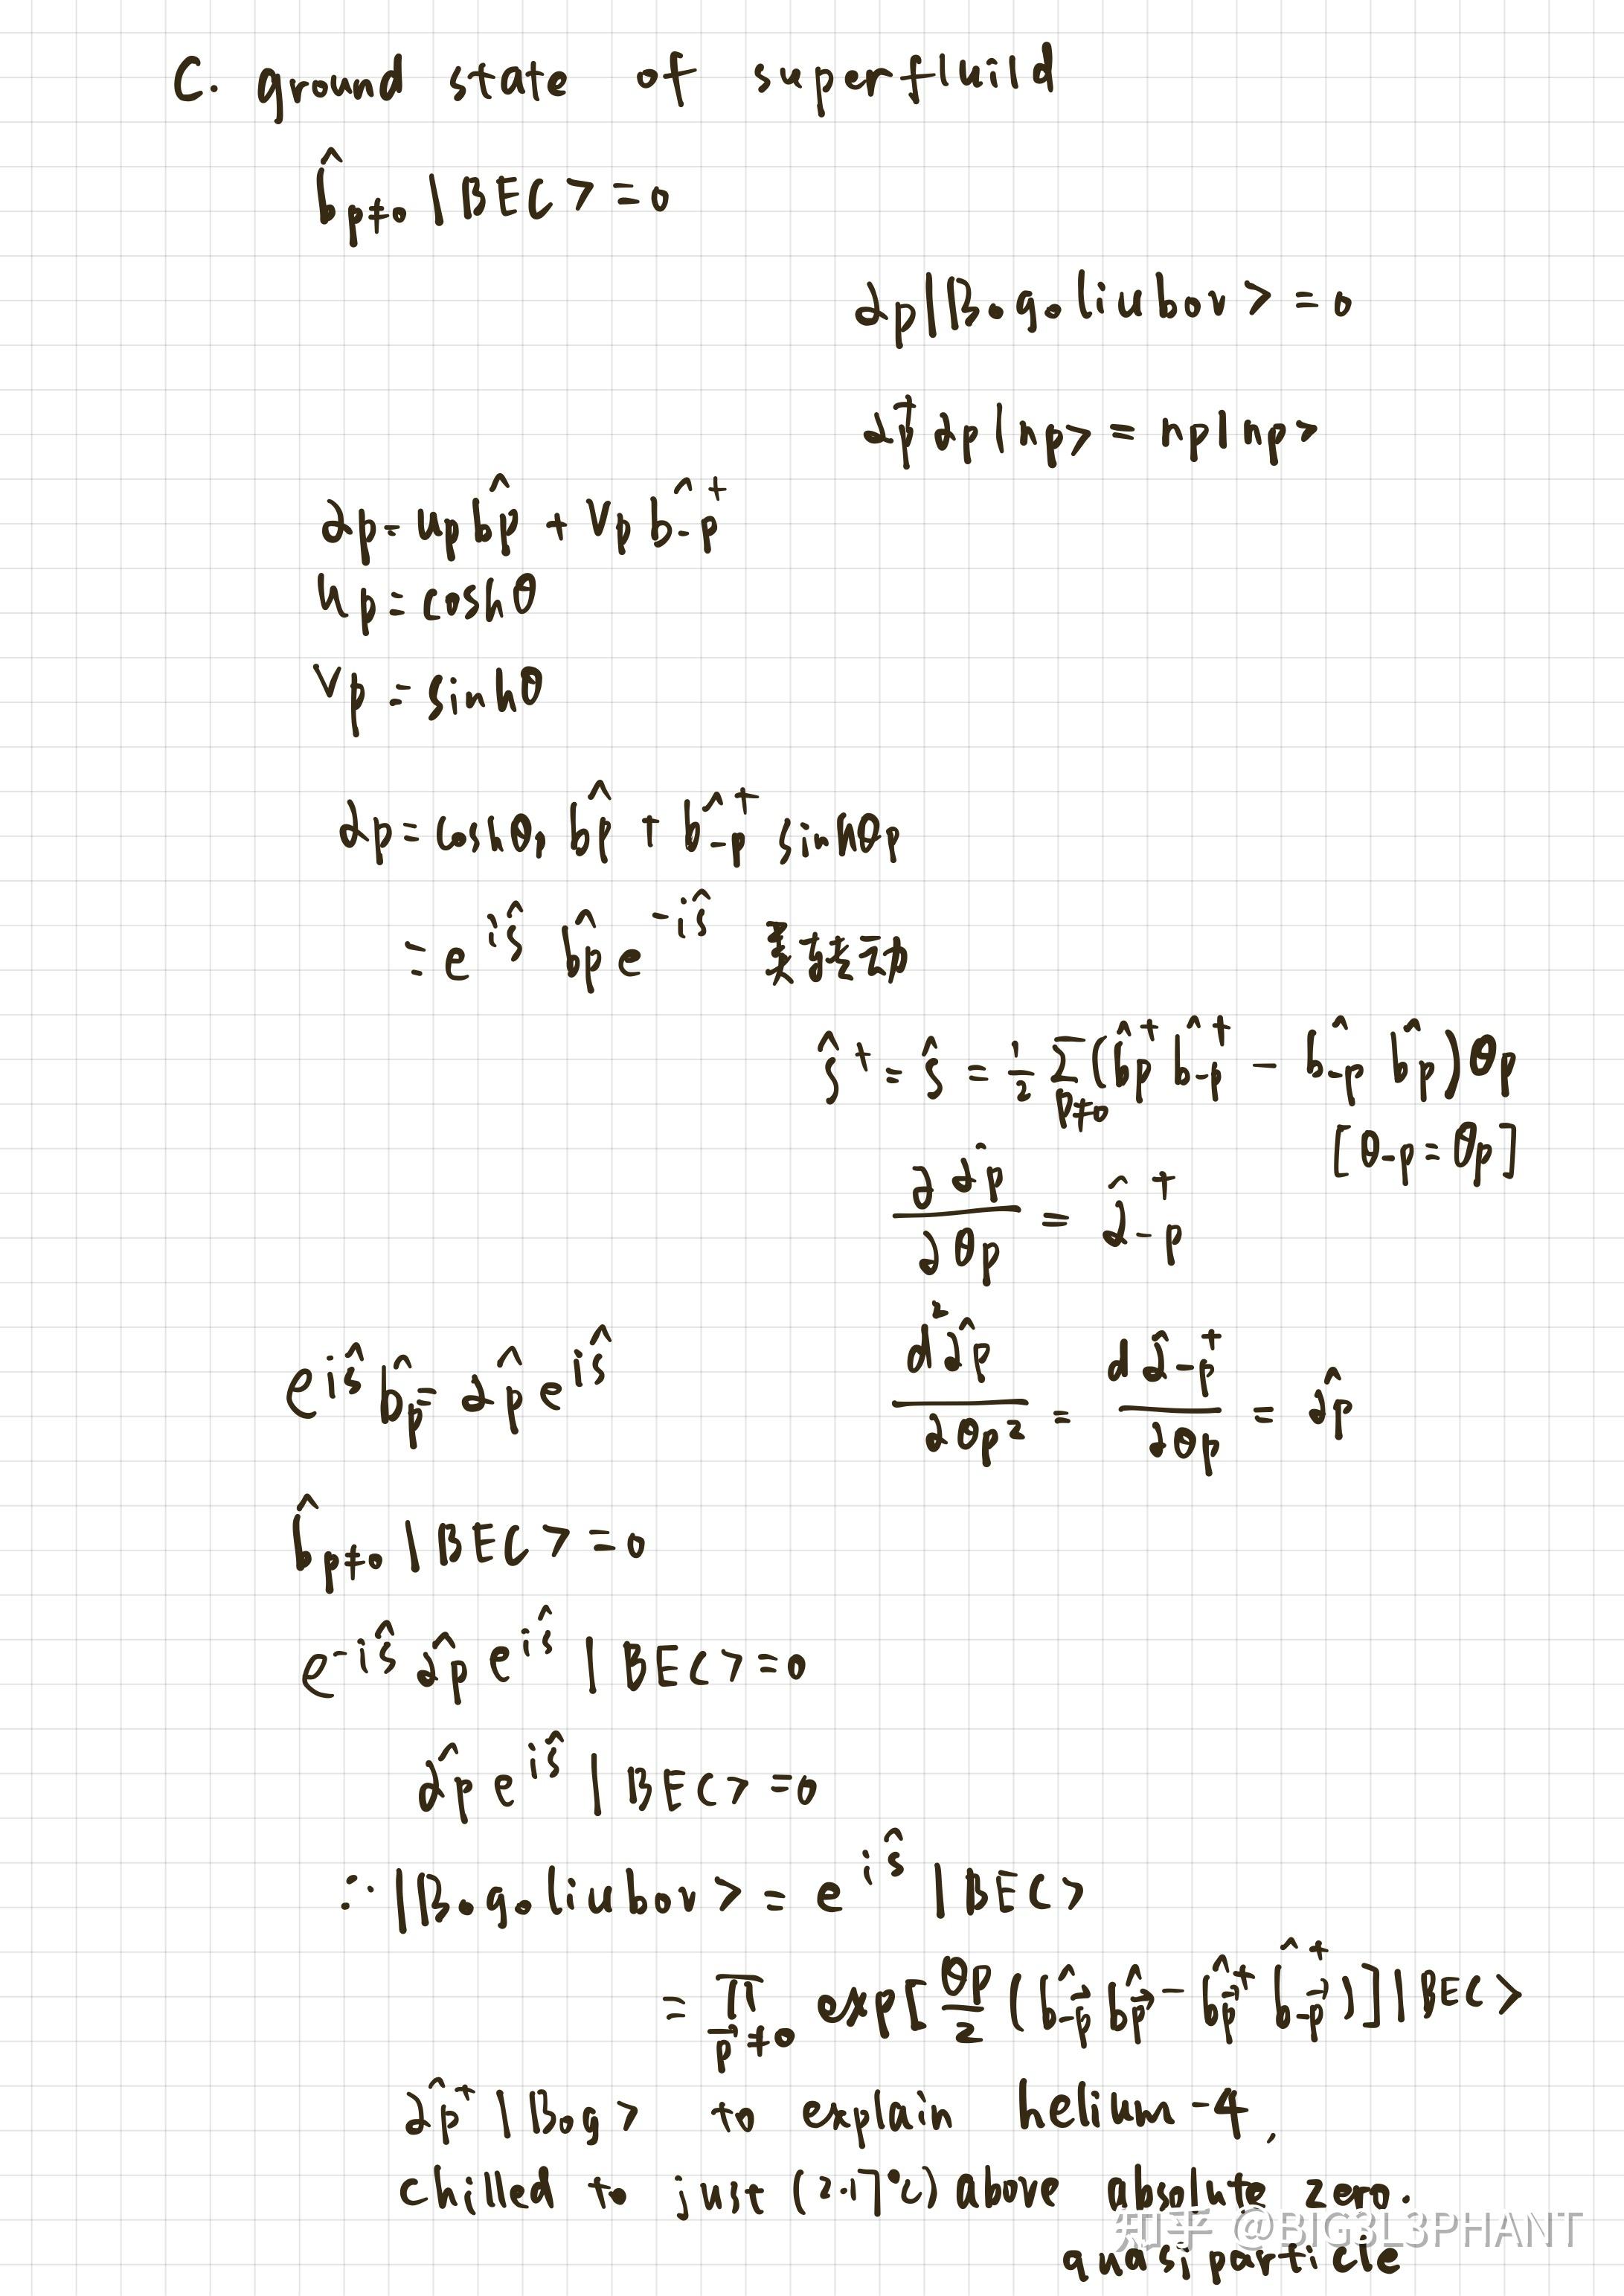 C. ground state of superfluild
b̂_{p≠0} |BEC> = 0
α_p |Bogoliubov> = 0
α_p^† α_p |n_p> = n_p |n_p>
α_p = u_p b̂_p + v_p b̂_{-p}^†
u_p = coshθ
v_p = sinhθ
α_p = coshθ_p b̂_p + b̂_{-p}^† sinhθ_p
= e^{iŝ} b̂_p e^{-iŝ} 类转动
ŝ^† = ŝ = 1/2 Σ_{p≠0} (b̂_p^† b̂_{-p}^† - b̂_{-p} b̂_p) θ_p
[θ_{-p} = θ_p]
∂α̂_p / ∂θ_p = α̂_{-p}^†
e^{iŝ} b̂_p = α̂_p e^{iŝ}
d²α̂_p / ∂θ_p² = dα̂_{-p}^† / ∂θ_p = α̂_p
b̂_{p≠0} |BEC> = 0
e^{-iŝ} α̂_p e^{iŝ} |BEC> = 0
α̂_p e^{iŝ} |BEC> = 0
∴ |Bogoliubov> = e^{iŝ} |BEC>
= Π_{p⃗≠0} exp[θ_p/2 (b̂_{-p⃗} b̂_{p⃗} - b̂_{p⃗}^† b̂_{-p⃗}^†)] |BEC>
α̂_p^† |Bog> to explain helium-4,
chilled to just (2.17℃) above absolute zero.
quasiparticle
知乎 @BIG3L3PHANT